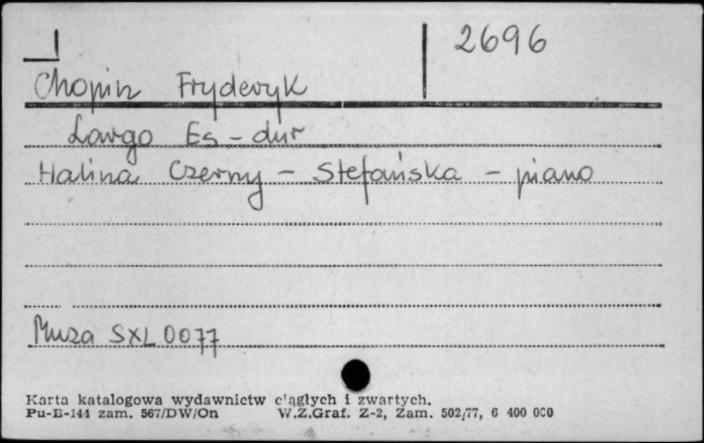 2696
Chopin Fryderyk
Largo Es-dur
Halina Czerny - Stefańska - piano
Muza SXL 0077
Karta katalogowa wydawnictw ciągłych i zwartych.
Pu-B-144 zam. 567/DW/On W.Z.Graf. Z-2, Zam. 502/77, 6 400 000